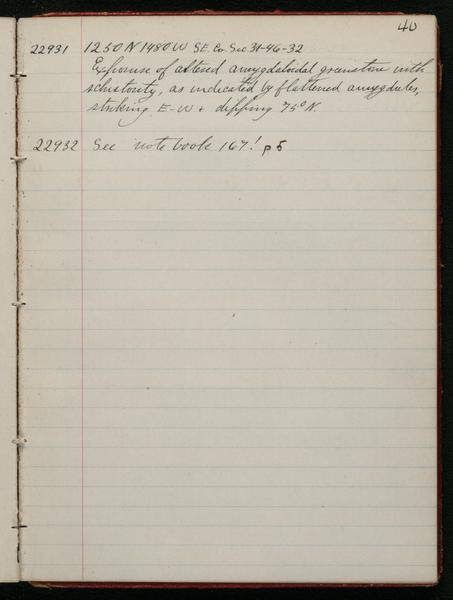 40
22931 1250 N 1480 W S.E. Cor. Sec 31-46-32
Exposure of altered amygdaloidal greenstone with
schistosity, as indicated by flattened amygdules,
striking E-W + dipping 75° N.
22932 See note book 167! p 5